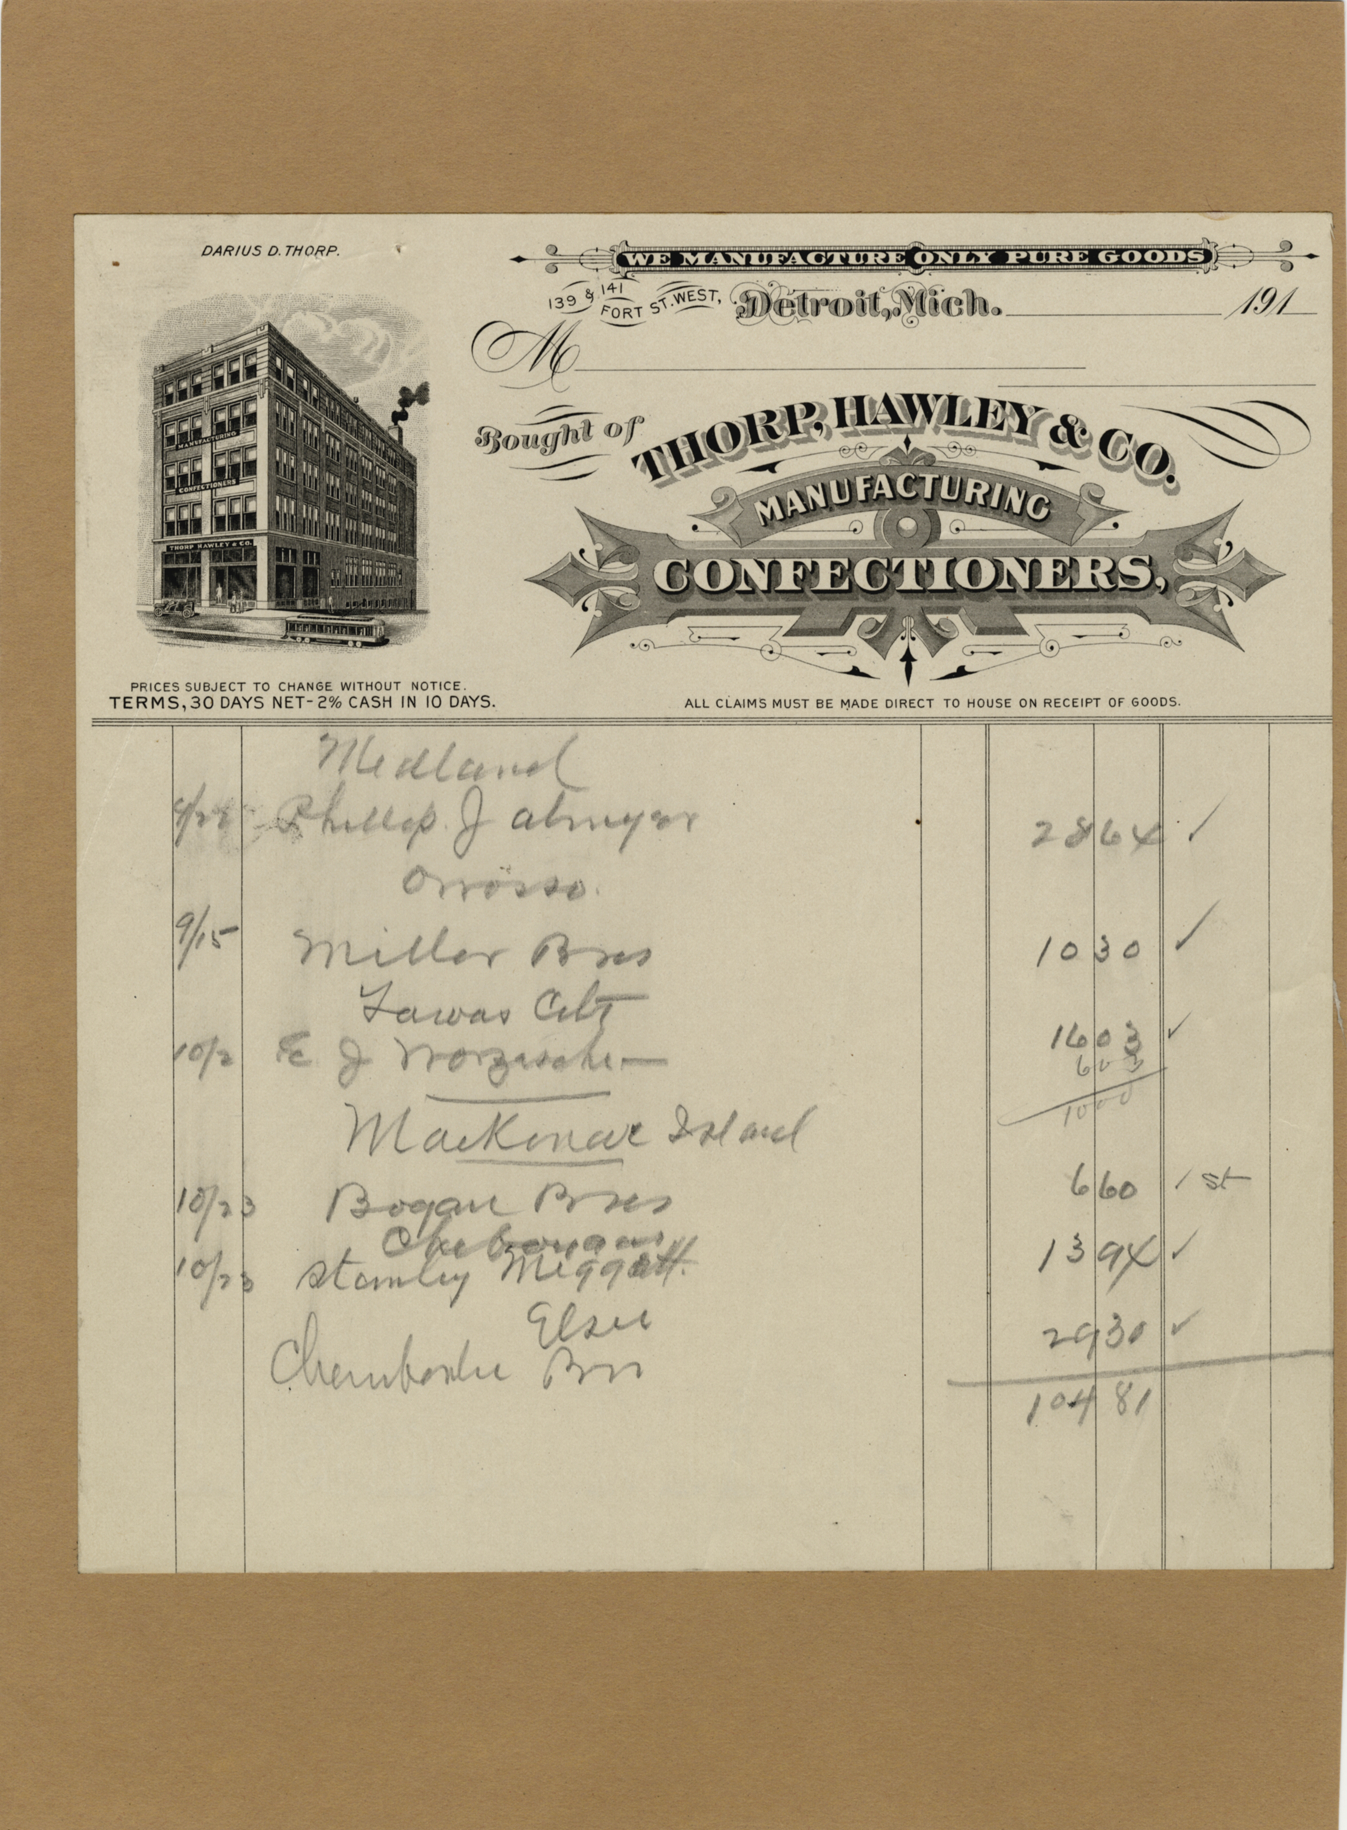 DARIUS D. THORP.
WE MANUFACTURE ONLY PURE GOODS
139 & 141 FORT ST. WEST, Detroit, Mich. 191
M
Bought of THORP, HAWLEY & CO.
MANUFACTURING
CONFECTIONERS,
MANUFACTURING
CONFECTIONERS
THORP HAWLEY & CO.
PRICES SUBJECT TO CHANGE WITHOUT NOTICE.
TERMS, 30 DAYS NET-2% CASH IN 10 DAYS.
ALL CLAIMS MUST BE MADE DIRECT TO HOUSE ON RECEIPT OF GOODS.
Medland
Phillip J 2864 ✓
Owosso.
9/15 Miller Bros 1030 ✓
Tawas City
10/2 E J 1603 ✓
603
1000
Mackonac Island
10/23 Bogan Bros 660 ✓ st
10/23 Stanley 1394 ✓
Elsie 2930 ✓
Bros
10481